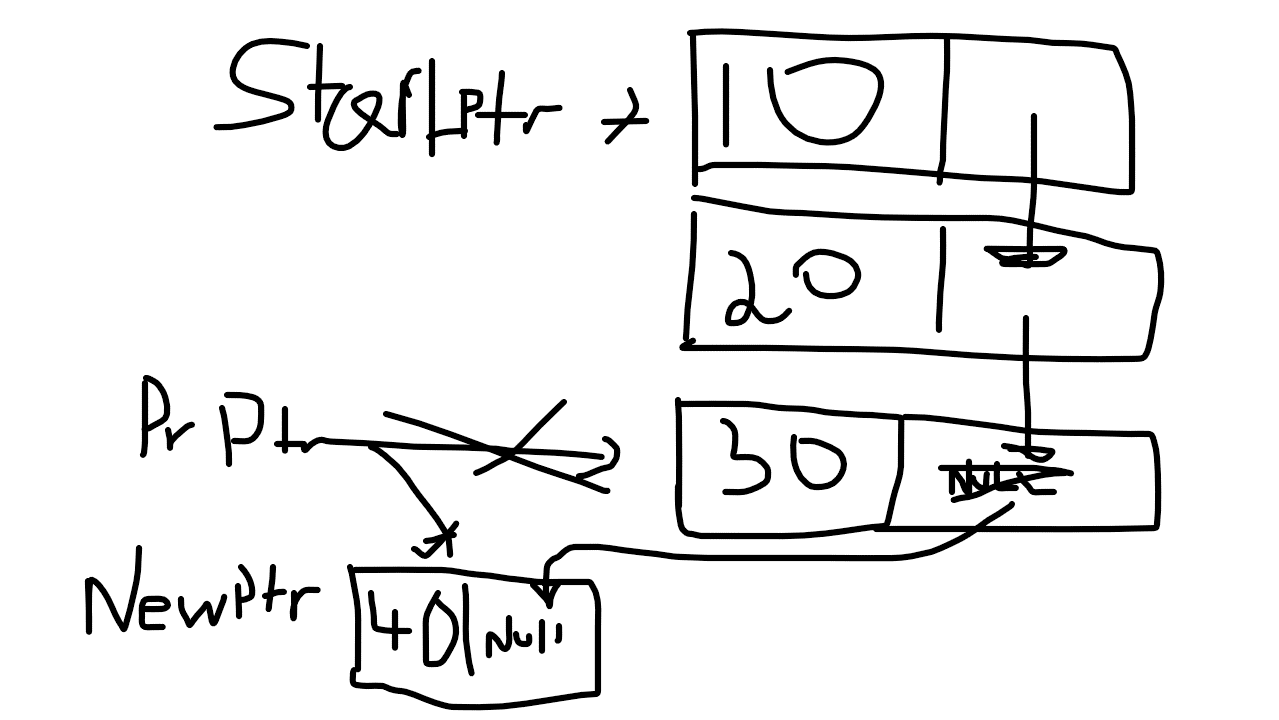 StartPtr → 10
20
PrPtr
30 NULL
NewPtr
40 | Null